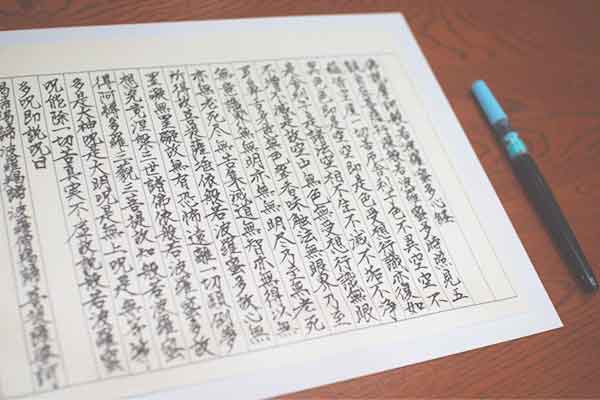 佛説摩訶般若波羅蜜多心経
観自在菩薩行深般若波羅蜜多時照見五
蘊皆空度一切苦厄舎利子色不異空空不
異色色即是空空即是色受想行識亦復如
是舎利子是諸法空相不生不滅不垢不浄
不増不減是故空中無色無受想行識無眼
耳鼻舌身意無色聲香味觸法無眼界乃至
無意識界無無明亦無無明尽乃至無老死
亦無老死尽無苦集滅道無智亦無得以無
所得故菩提薩埵依般若波羅蜜多故心無
罣礙無罣礙故無有恐怖遠離一切顛倒夢
想究竟涅槃三世諸佛依般若波羅蜜多故
得阿耨多羅三藐三菩提故知般若波羅蜜
多是大神呪是大明呪是無上呪是無等等
呪能除一切苦真実不虚故説般若波羅蜜
多呪即説呪曰
羯諦羯諦波羅羯諦波羅僧羯諦菩提薩婆訶